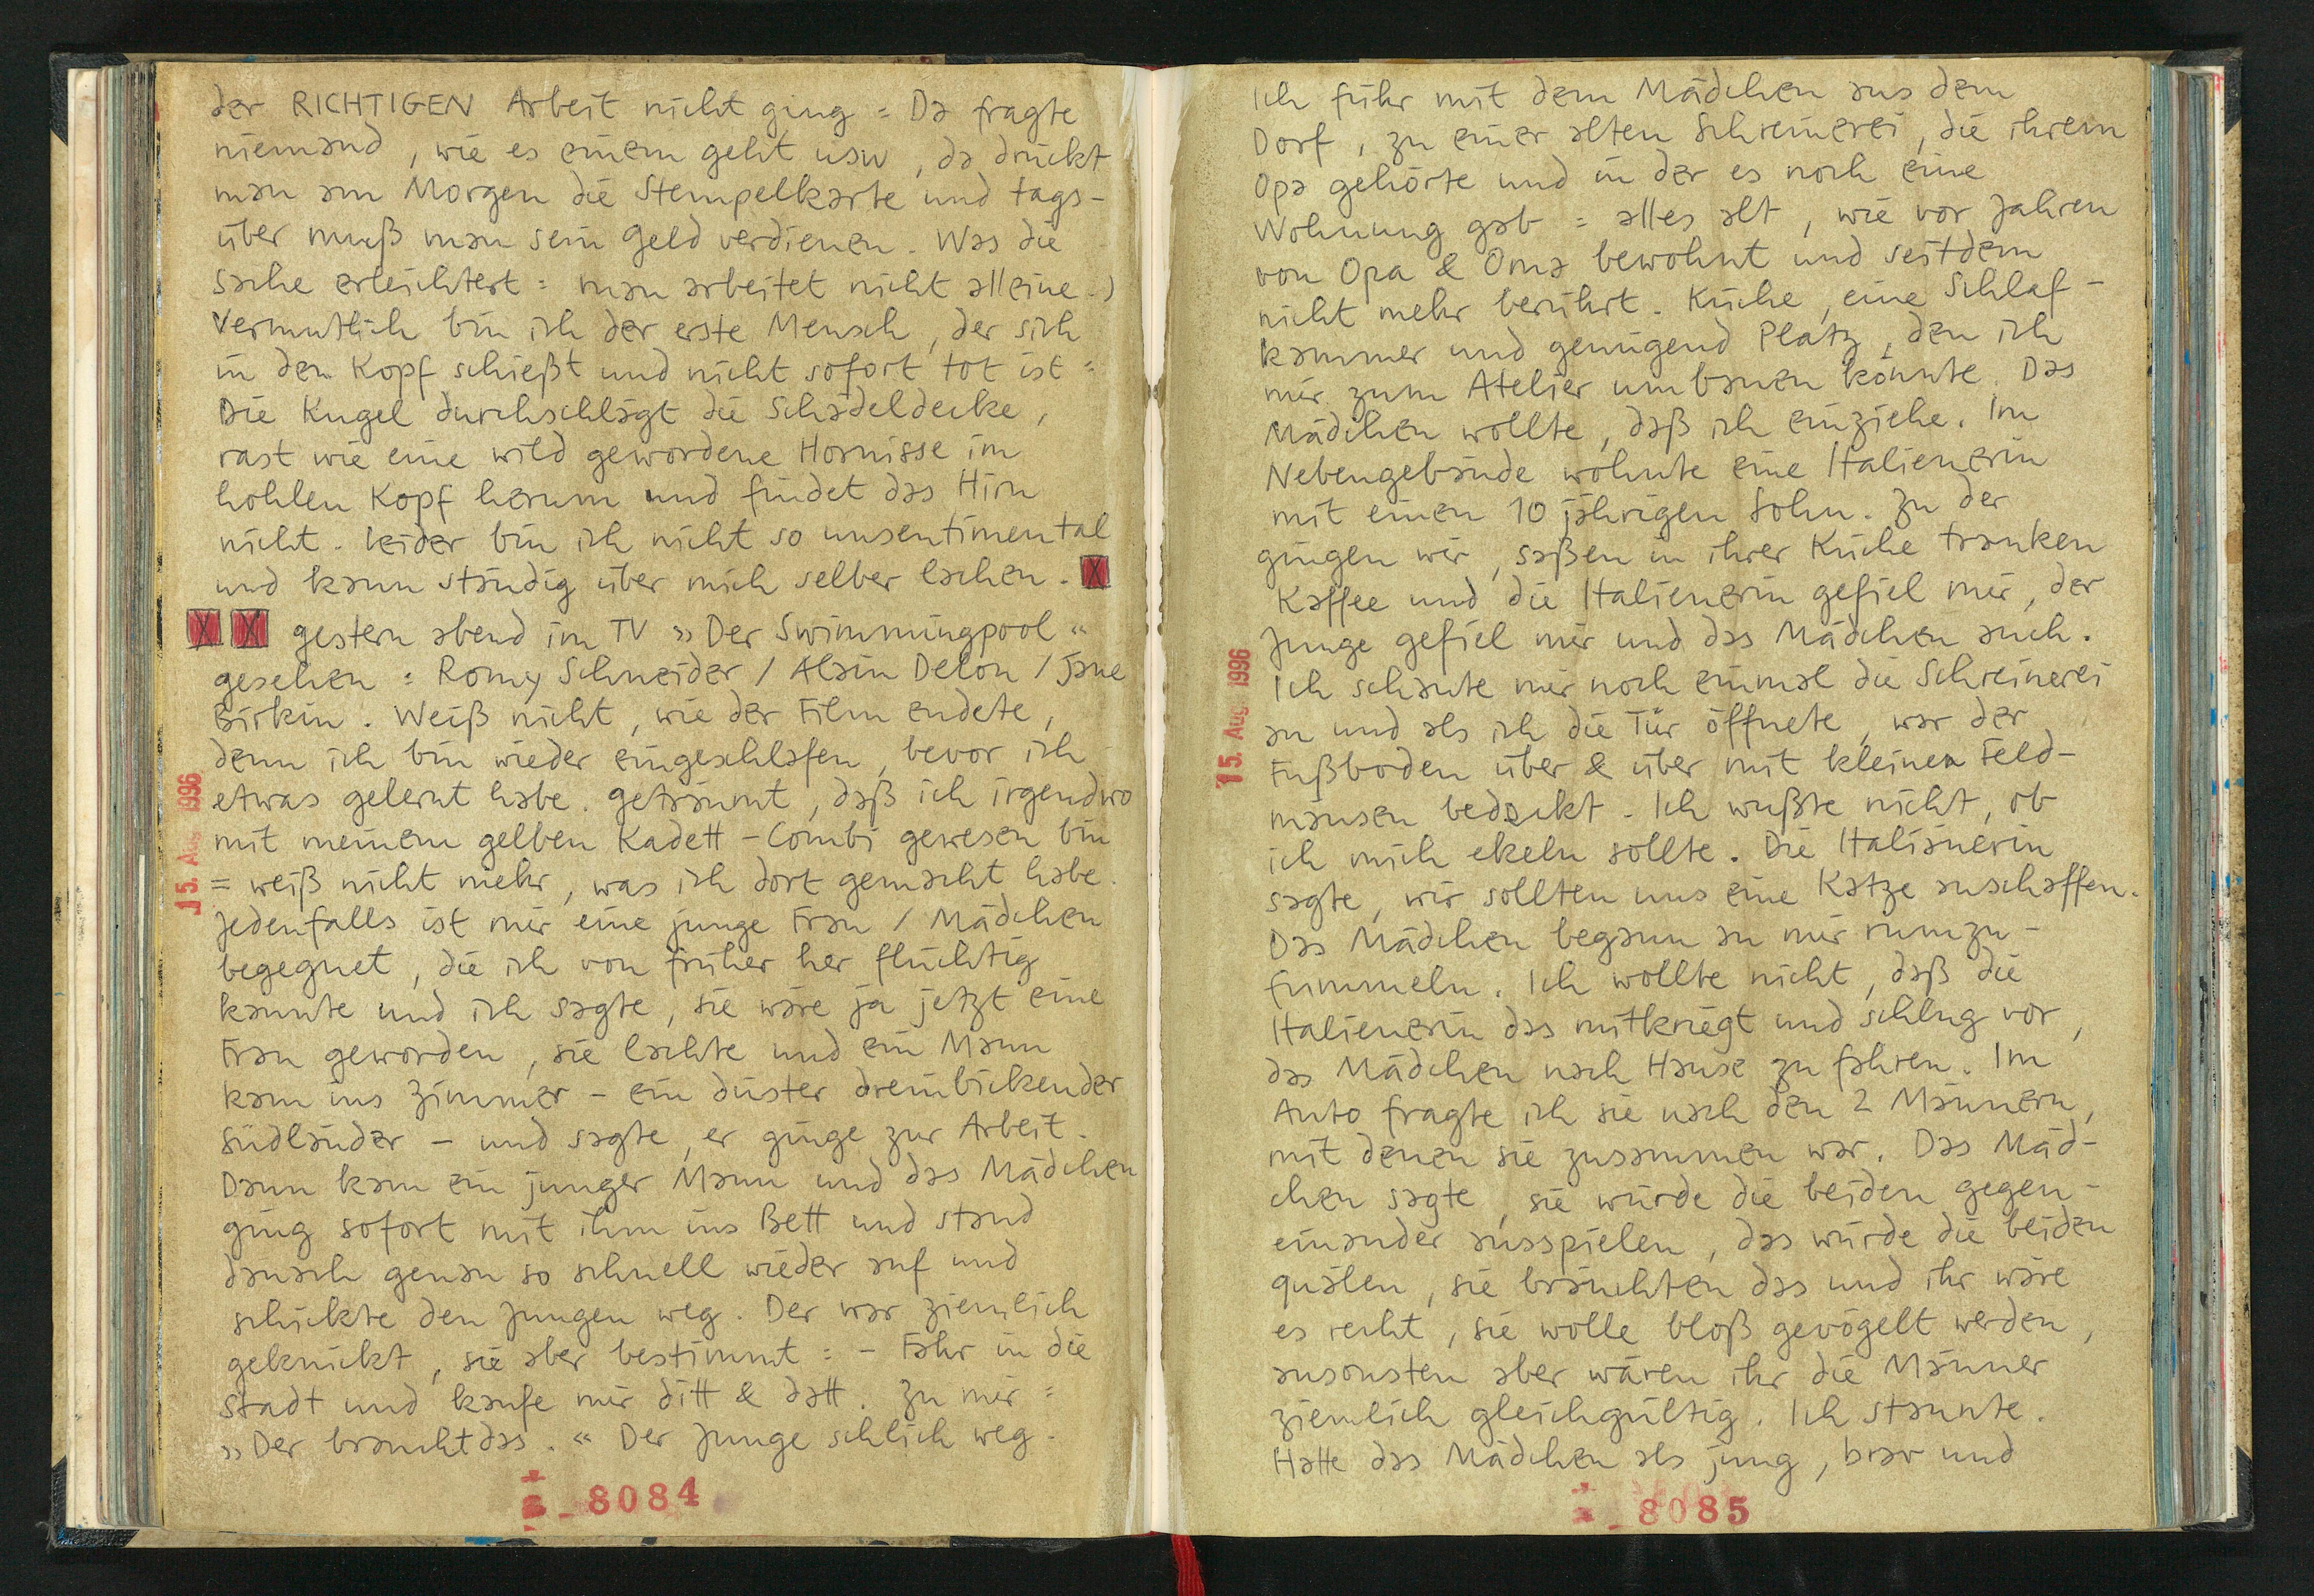 der RICHTIGEN Arbeit nicht ging = Da fragte
niemand, wie es einem geht usw, da drückt
man am Morgen die Stempelkarte und tags-
über muß man sein Geld verdienen. Was die
Sache erleichtert = man arbeitet nicht alleine.)
Vermutlich bin ich der erste Mensch, der sich
in den Kopf schießt und nicht sofort tot ist =
Die Kugel durchschlägt die Schädeldecke,
rast wie eine wild gewordene Hornisse im
hohlen Kopf herum und findet das Hirn
nicht. Leider bin ich nicht so unsentimental
und kann ständig über mich selber lachen. X
X X gestern abend im TV »Der Swimmingpool«
gesehen = Romy Schneider / Alain Delon / Jane
Birkin. Weiß nicht, wie der Film endete,
denn ich bin wieder eingeschlafen, bevor ich
etwas gelernt habe. geträumt, daß ich irgendwo
mit meinem gelben Kadett-Combi gewesen bin
= weiß nicht mehr, was ich dort gemacht habe.
Jedenfalls ist mir eine junge Frau / Mädchen
begegnet, die ich von früher her flüchtig
kannte und ich sagte, sie wäre ja jetzt eine
Frau geworden, sie lachte und ein Mann
kam ins Zimmer - ein düster dreinbickender
Südländer - und sagte, er ginge zur Arbeit.
Dann kam ein junger Mann und das Mädchen
ging sofort mit ihm ins Bett und stand
danach genau so schnell wieder auf und
schickte den Jungen weg. Der war ziemlich
geknickt, sie aber bestimmt = - Fahr in die
Stadt und kaufe mir ditt & datt. Zu mir =
»Der braucht das.« Der Junge schlich weg.
15. Aug 1996
8084
Ich fuhr mit dem Mädchen aus dem
Dorf, zu einer alten Schreinerei, die ihrem
Opa gehörte und in der es noch eine
Wohnung gab = alles alt, wie vor Jahren
von Opa & Oma bewohnt und seitdem
nicht mehr berührt. Küche, eine Schlaf-
kammer und genügend Platz, den ich
mir zum Atelier umbauen könnte. Das
Mädchen wollte, daß ich einziehe. Im
Nebengebäude wohnte eine Italienerin
mit einen 10 jährigen Sohn. Zu der
gingen wir, saßen in ihrer Küche tranken
Kaffee und die Italienerin gefiel mir, der
Junge gefiel mir und das Mädchen auch.
Ich schaute mir noch einmal die Schreinerei
an und als ich die Tür öffnete, war der
Fußboden über & über mit kleinen Feld-
mäusen bedeckt. Ich wußte nicht, ob
ich mich ekeln sollte. Die Italiänerin
sagte, wir sollten uns eine Katze anschaffen.
Das Mädchen begann an mir rumzu-
fummeln. Ich wollte nicht, daß die
Italienerin das mitkriegt und schlug vor,
das Mädchen nach Hause zu fahren. Im
Auto fragte ich sie nach den 2 Männern,
mit denen sie zusammen war. Das Mäd-
chen sagte, sie würde die beiden gegen-
einander ausspielen, das würde die beiden
quälen, sie bräuchten das und ihr wäre
es recht, sie wolle bloß gevögelt werden,
ansonsten aber wären ihr die Männer
ziemlich gleichgültig. Ich staunte.
Hatte das Mädchen als jung, brav und
15. Aug 1996
8085